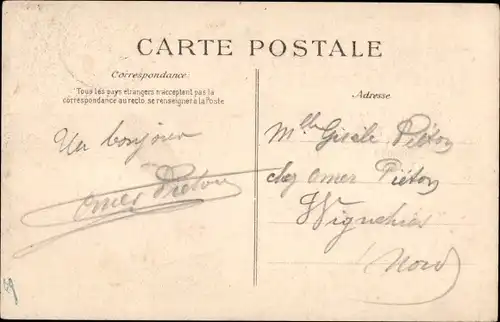 CARTE POSTALE
Correspondance
Tous les pays étrangers n'acceptent pas la
correspondance au recto, se renseigner à la Poste
Un bonjour
Omer Piéton
Adresse
Mlle Gisèle Piéton
chez Omer Piéton
Wignehies
Nord